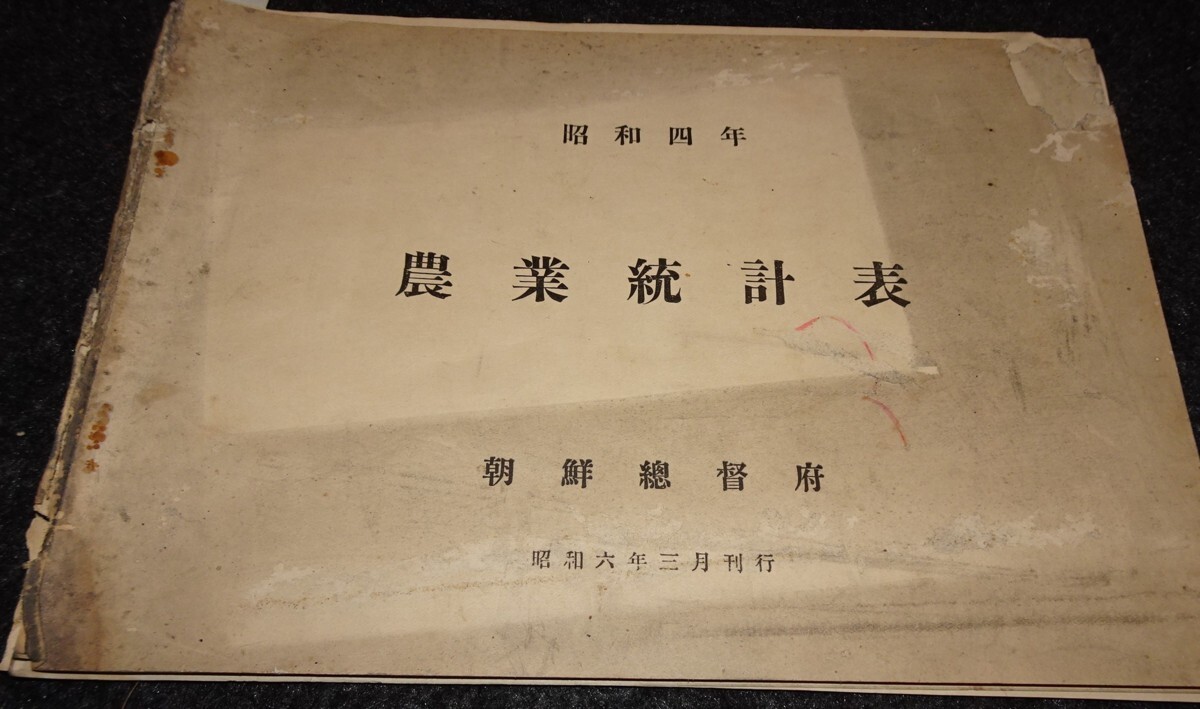 昭和四年
農業統計表
朝鮮總督府
昭和六年三月刊行